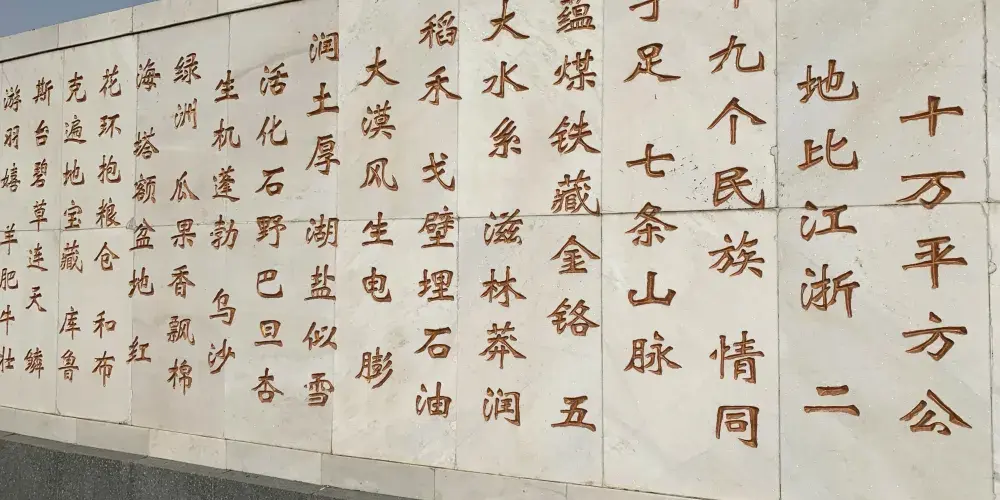 十万平方公
地比江浙 二
九个民族 情同
手足 七条山脉
蕴煤铁藏金铬 五
大水系 滋林莽润
稻禾 戈壁埋石油
大漠风生电 膨
润土厚 湖盐似雪
活化石野巴旦杏
生机蓬勃 乌沙
绿洲 瓜果香飘棉
海 塔额盆地红
花环抱粮仓 和布
克遍地宝藏 库鲁
斯台碧草连天 鳞
游羽嬉 羊肥牛壮